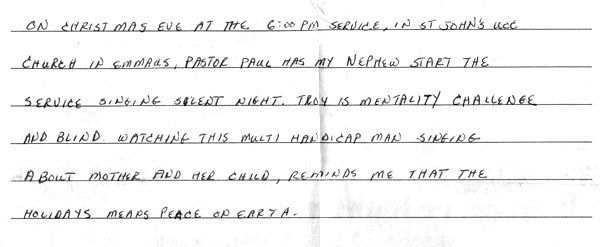 ON CHRISTMAS EVE AT THE 6:00 PM SERVICE, IN ST JOHN'S UCC
CHURCH IN EMMAUS, PASTOR PAUL HAS MY NEPHEW START THE
SERVICE SINGING SILENT NIGHT. TROY IS MENTALITY CHALLENGE
AND BLIND. WATCHING THIS MULTI HANDICAP MAN SINGING
ABOUT MOTHER AND HER CHILD, REMINDS ME THAT THE
HOLIDAYS MEANS PEACE ON EARTH.